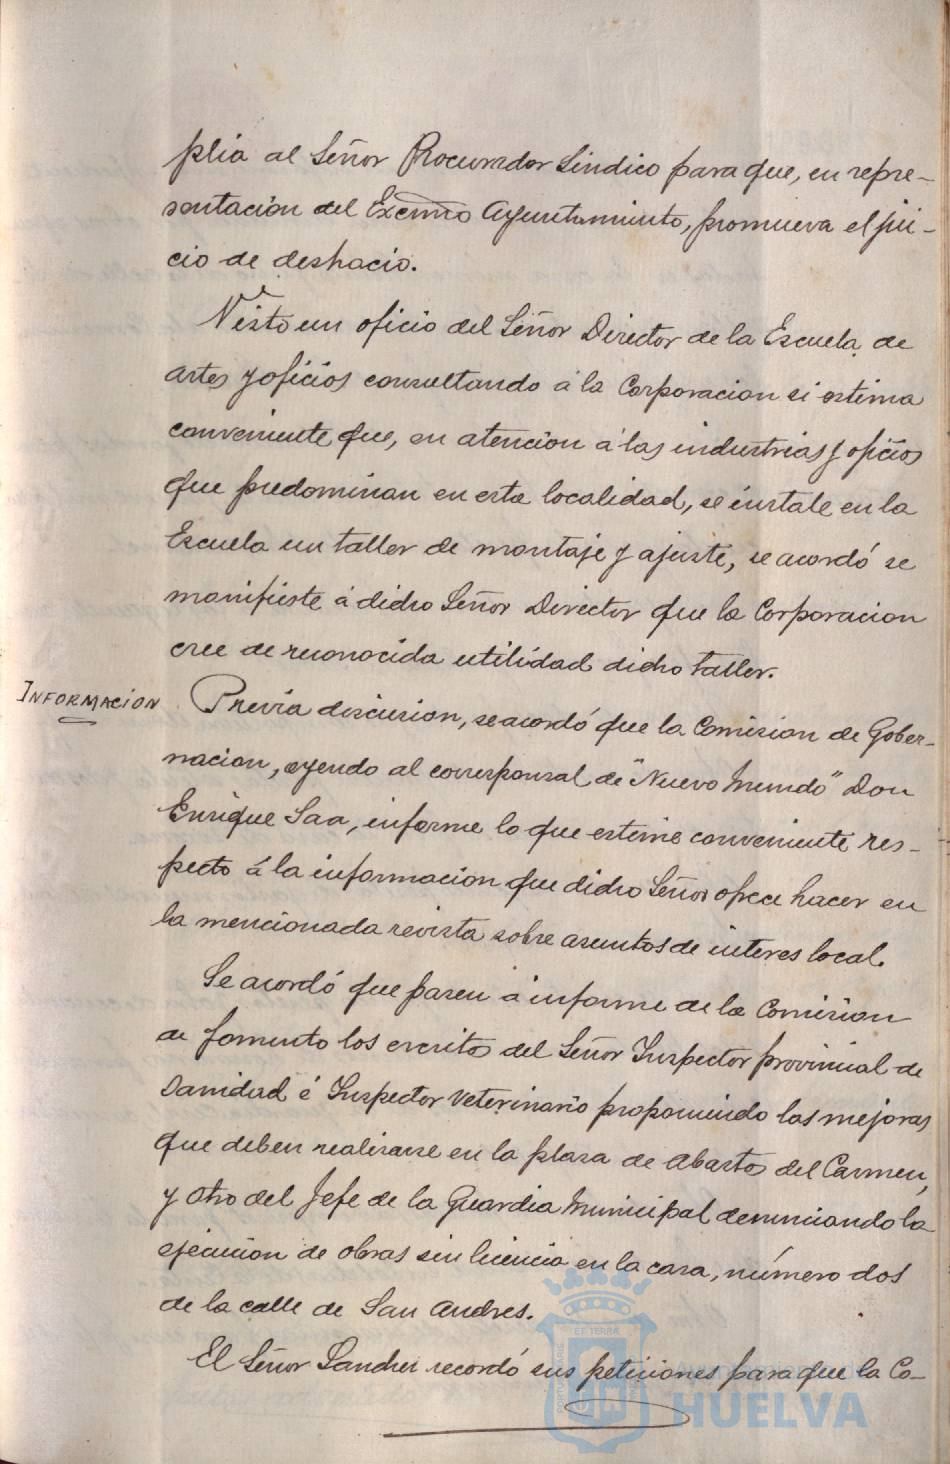 plia al Señor Procurador Sindico para que, en repre-
sentacion del Excmo Ayuntamiento, promueva el jui-
cio de deshacio.
Visto un oficio del Señor Director de la Escuela de
artes y oficios consultando á la Corporacion si estima
conveniente que, en atencion á las industrias y oficios
que predominan en esta localidad, se instale en la
Escuela un taller de montaje y ajuste, se acordó se
manifieste á dicho Señor Director que la Corporacion
cree de reconocida utilidad dicho taller.
INFORMACION
Previa discusion, se acordó que la Comision de Gober-
nacion, oyendo al corresponsal de "Nuevo Mundo" Don
Enrique Saa, informe lo que estime conveniente res-
pecto á la informacion que dicho Señor ofrece hacer en
la mencionada revista sobre asuntos de interes local.
Se acordó que pasen á informe de la Comision
de fomento los escritos del Señor Inspector provincial de
Sanidad é Inspector Veterinario proponiendo las mejoras
que deben realisarse en la plasa de Abastos del Carmen,
y otro del Jefe de la Guardia Municipal denunciando la
ejecucion de obras sin licencia en la casa, número dos
de la calle de San Andres.
El Señor Sanchez recordó sus peticiones para que la Co-
HUELVA